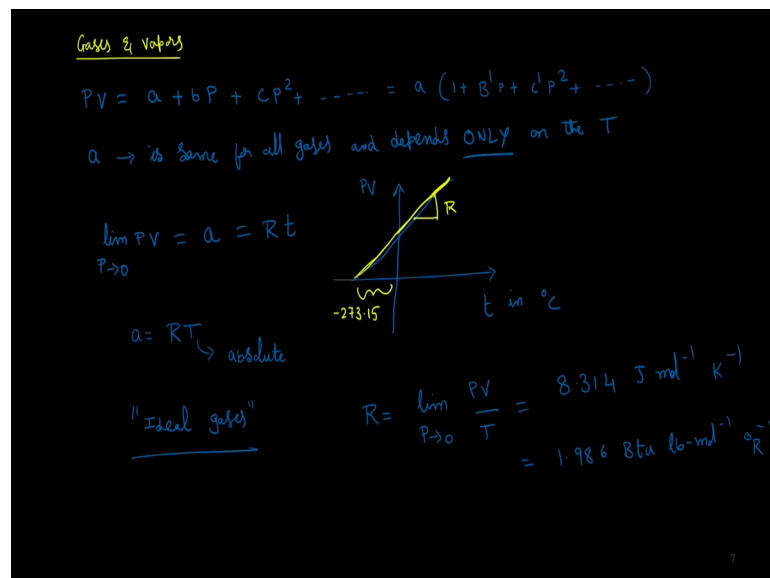 Gases & vapors
PV = a + bP + CP² + ------ = a (1 + B'P + C'P² + -----)
a → is same for all gases and depends ONLY on the T
PV
R
lim PV = a = Rt
P→0
-273.15
t in °C
a = RT
absolute
"Ideal gases"
R = lim PV/T = 8.314 J mol⁻¹ K⁻¹
P→0
= 1.986 Btu lb-mol⁻¹ °R⁻
7